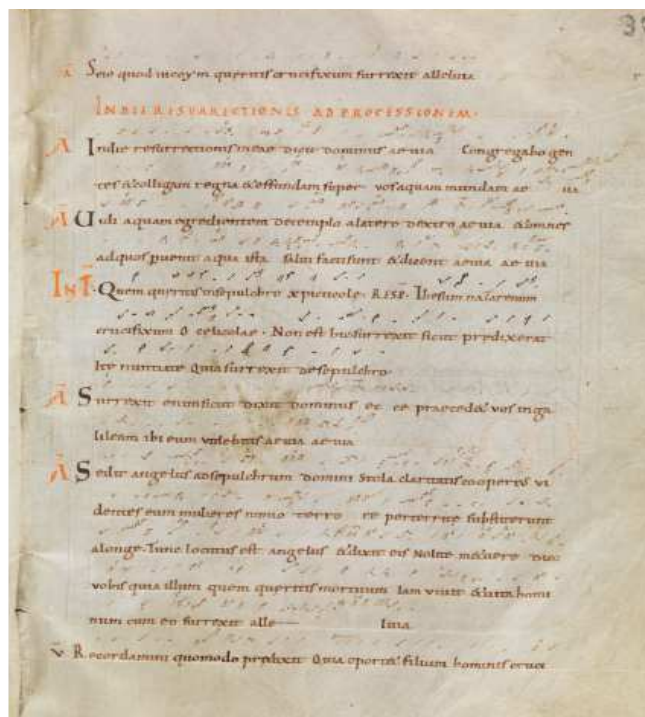 3
A Scio quod ihcoym queritis crucifixum surrexit alleluia
IN DIE RESURRECTIONIS AD PROCESSIONEM.
A In die resurrectionis meae dicit dominus aeuia Congregabo gen
tes & colligam regna & effundam super vos aquam mundam ae uia
A Uidi aquam egredientem de templo a latere dextro aeuia & omnes
ad quos peruenit aqua ista salui facti sunt & dicent aeuia aeuia
INT. Quem queritis in sepulchro xpicticole. RESP. Ihesum nazarenum
crucifixum o celicolae. Non est hic surrexit sicut predixerat
Ite nuntiate quia surrexit de sepulchro.
A Surrexit enim sicut dixit dominus ec ce praeced& vos in ga
lileam ibi eum videbitis aeuia aeuia
A Sedit angelus ad sepulchrum domini stola claritatis coopertus vi
dentes eum mulieres nimio terro re perterrite substiterunt
a longe. Tunc locutus est angelus & dixit eis Nolite metuere dico
vobis quia illum quem queritis mortuum Iam viuit & uita homi
num cum eo surrexit alle luia.
V Recordamini quomodo predixit Quia oport& filium hominis cruci